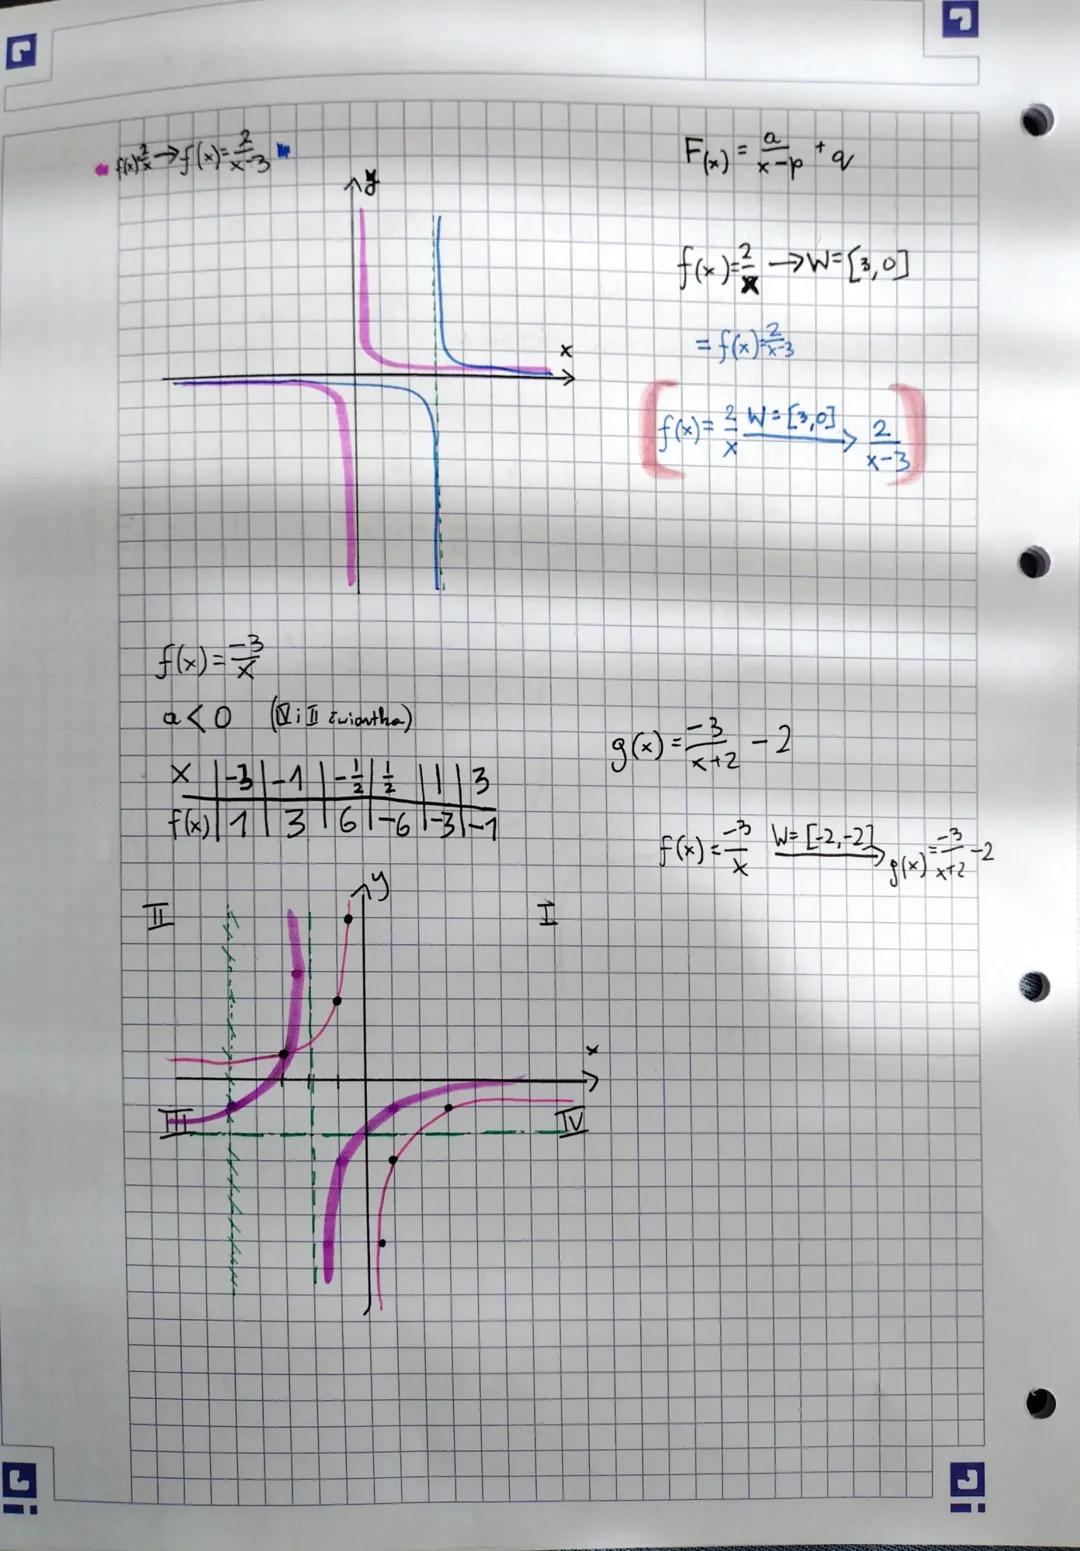 f(x)=2/x → f(x)=2/(x-3)
F(x) = a/(x-p) + q
y
f(x)=2/x → W=[3,0]
= f(x)=2/(x-3)
x
f(x)=2/x W=[3,0] → 2/(x-3)
f(x)=-3/x
a<0 (IV i II ćwiartka)
g(x)=-3/(x+2) -2
x | -3 | -1 | -1/2 | 1/2 | 1 | 3
f(x) | 1 | 3 | 6 | -6 | -3 | -1
f(x)=-3/x W=[-2,-2] → g(x)=-3/(x+2)-2
y
II
I
x
III
IV